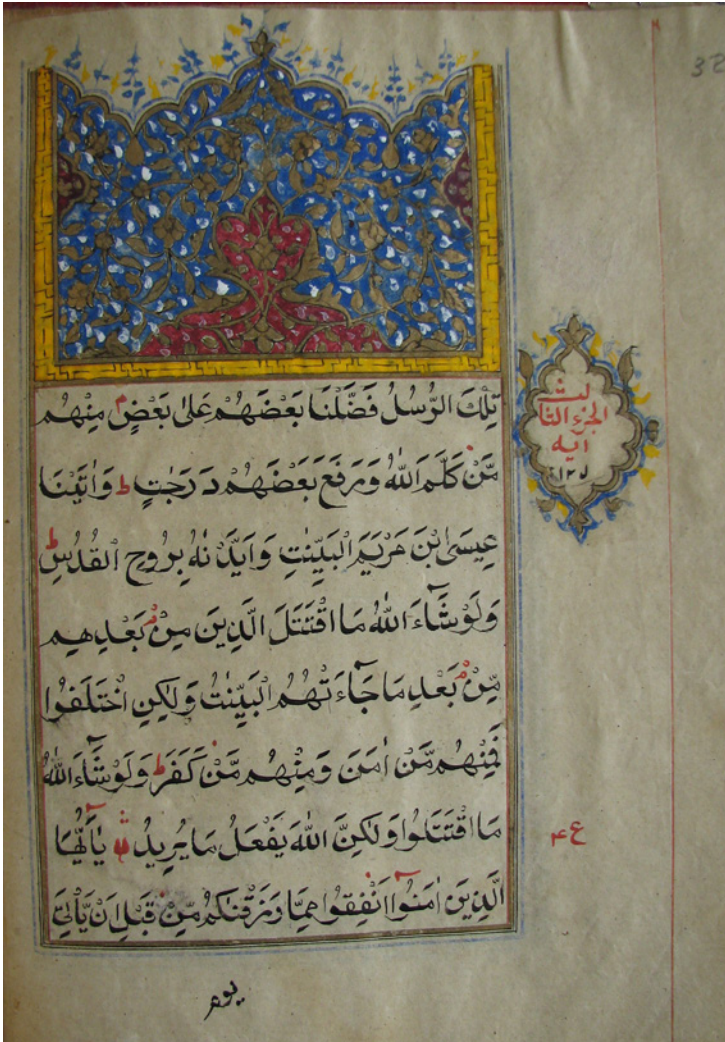 تِلْكَ الرُّسُلُ فَضَّلْنَا بَعْضَهُمْ عَلٰى بَعْضٍ م مِنْهُم
مَّنْ كَلَّمَ اللّٰهُ وَرَفَعَ بَعْضَهُمْ دَرَجٰتٍ ط وَاٰتَيْنَا
عِيسَى ابْنَ مَرْيَمَ الْبَيِّنٰتِ وَاَيَّدْنٰهُ بِرُوحِ الْقُدُسِ ط
وَلَوْ شَآءَ اللّٰهُ مَا اقْتَتَلَ الَّذِينَ مِنْ بَعْدِهِم
مِّنْ بَعْدِ مَا جَآءَتْهُمُ الْبَيِّنٰتُ وَلٰكِنِ اخْتَلَفُوا
فَمِنْهُم مَّنْ اٰمَنَ وَمِنْهُم مَّنْ كَفَرَ ط وَلَوْ شَآءَ اللّٰهُ
مَا اقْتَتَلُوا وَلٰكِنَّ اللّٰهَ يَفْعَلُ مَا يُرِيدُ يٰٓاَيُّهَا
الَّذِينَ اٰمَنُوٓا اَنْفِقُوا مِمَّا رَزَقْنٰكُمْ مِّنْ قَبْلِ اَنْ يَّاْتِيَ
يوم
الجزء الثالث
ايه
ع۴